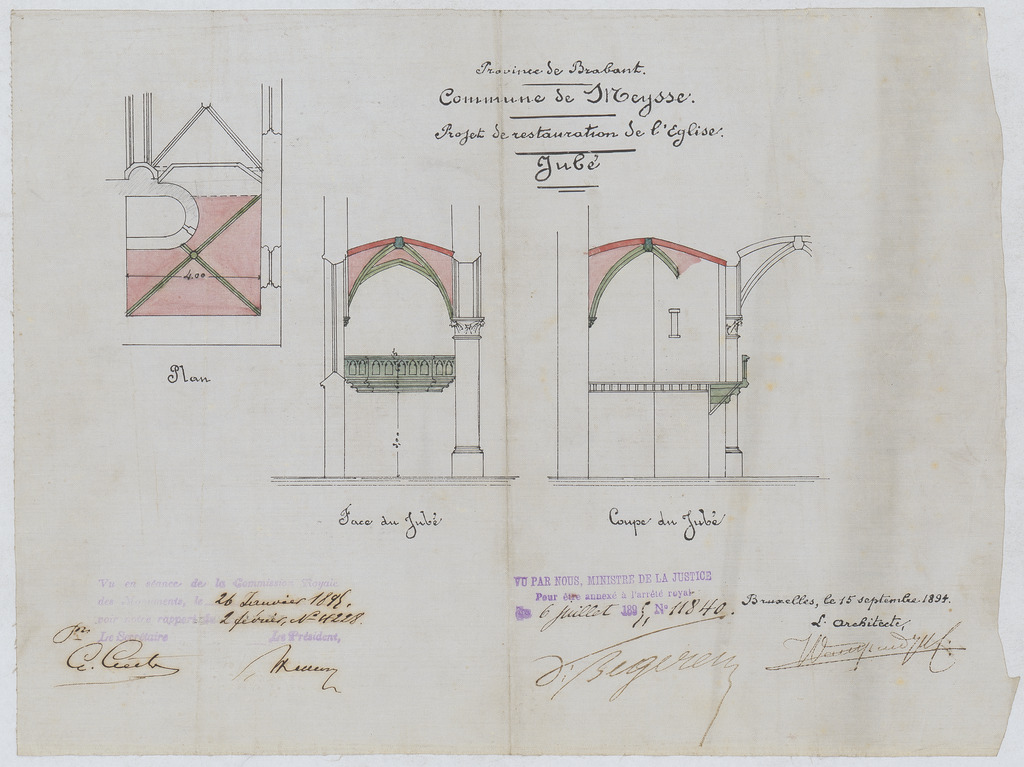 Province de Brabant.
Commune de Meysse.
Projet de restauration de l'Eglise.
Jubé
4.00
Plan
Face du Jubé
Coupe du Jubé
Vu en séance de la Commission Royale
des Monuments, le 26 Janvier 1895,
rapport du 2 février, N°
Le Secrétaire Le Président,
VU PAR NOUS, MINISTRE DE LA JUSTICE
Pour être annexé à l'arrêté royal
du 6 juillet 1895, N° 11840.
Bruxelles, le 15 septembre 1894.
L'architecte,